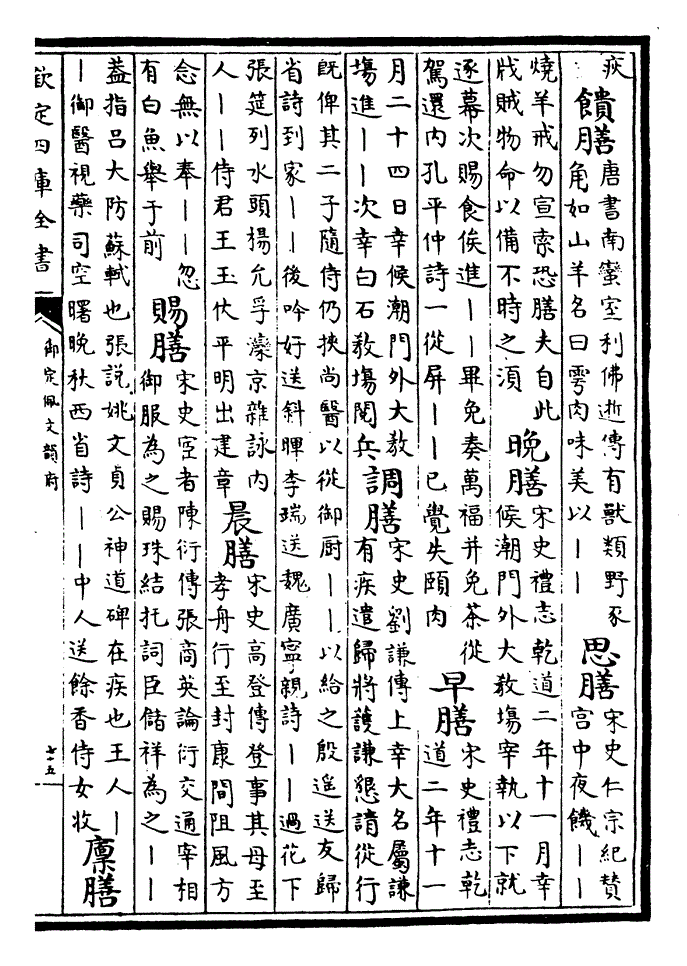 疾
饋膳
唐書南蠻室利佛逝傳有獸類野豕
角如山羊名曰雩肉味美以｜｜
思膳
宋史仁宗紀贊
宫中夜饑｜｜
燒羊戒勿宣索恐膳夫自此
戕賊物命以備不時之須
晚膳
宋史禮志乾道二年十一月幸
候潮門外大教塲宰執以下就
逐幕次賜食俟進｜｜畢免奏萬福并免茶從
駕還内孔平仲詩一從屏｜｜已覺失頤肉
早膳
宋史禮志乾
道二年十一
月二十四日幸候潮門外大教
塲進｜｜次幸白石教塲閲兵
調膳
宋史劉謙傳上幸大名屬謙
有疾遣歸將護謙懇請從行
旣俾其二子隨侍仍挾尚醫以從御厨｜｜以給之殷遥送友歸
省詩到家｜｜後吟好送斜暉李瑞送魏廣寧親詩｜｜過花下
張筵列水頭楊允孚灤京雜詠内
人｜｜侍君王玉仗平明出建章
晨膳
宋史高登傳登事其母至
孝舟行至封康間阻風方
念無以奉｜｜忽
有白魚舉于前
賜膳
宋史宦者陳衍傳張商英論衍交通宰相
御服為之賜珠結托詞臣儲祥為之｜｜
葢指吕大防蘇軾也張說姚文貞公神道碑在疾也王人｜
｜御醫視藥司空曙晚秋西省詩｜｜中人送餘香侍女收
廪膳
欽定四庫全書
御定佩文韻府
七十五